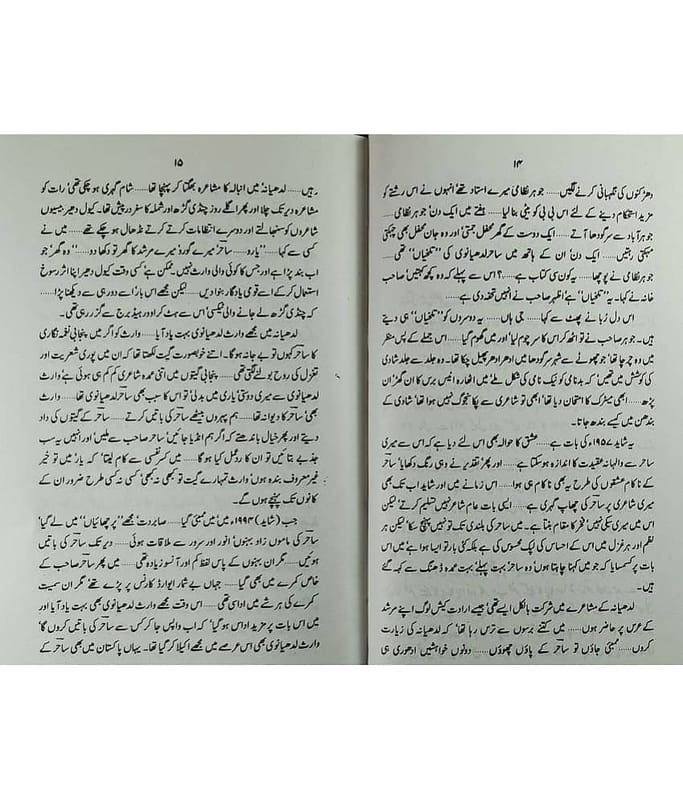 ۱۴
دھڑکنوں کی نگہبانی کرنے لگیں...... جوہر نظامی میرے استاد تھے' انہوں نے اس رشتے کو
مزید استحکام دینے کے لئے اس بی بی کو بیٹی بنا لیا...... ہفتے میں ایک دن' جوہر نظامی......
جوہر آباد سے سرگودھا آتے...... ایک دوست کے گھر محفل جمتی' اور وہ جان محفل بھی چہکتی
مہکتی رہتیں...... ایک دن' ان کے ہاتھ میں ساحر لدھیانوی کی ''تلخیاں'' تھی......
جوہر نظامی نے پوچھا...... یہ کون سی کتاب ہے......؟ اس سے پہلے کہ وہ کچھ کہتیں' صاحب
خانہ نے کہا۔ یہ ''تلخیاں'' ہے' اظہر صاحب نے انہیں تحفہ دی ہے......
اس دل زبا نے پھٹ سے کہا...... جی ہاں...... یہ دوسروں کو ''تلخیاں'' ہی دیتے
ہیں۔ جوہر صاحب نے تو اٹھ کر اس کا سر چوم لیا' اور میں گھوم گیا...... اس جملے کے پس منظر
میں وہ چرچا تھا' جو چھوٹے سے شہر سرگودھا میں ادھر ادھر پھیل چکا تھا۔ وہ جلد سے جلد شادی
کی کوشش میں تھیں' کہ بدنامی کو نیک نامی کی شکل ملے' میں اٹھارہ انیس برس کا ان گھڑ' ان
پڑھ...... ابھی میٹرک کا امتحان دیا تھا' ابھی تو شاعری سے پکا سنجوگ نہیں ہوا تھا' شادی کے
بندھن میں کیسے بندھ جاتا۔
یہ شاید ۱۹۵۷ء کی بات ہے...... عشق کا حوالہ بھی اس لئے دیا ہے کہ اس سے میری
ساحر سے والہانہ عقیدت کا اندازہ ہو سکتا ہے...... اور پھر' تقدیر نے وہی رنگ دکھایا' ساحر
کے ناکام عشقوں کی طرح یہ بھی ناکام ہی ہوا...... اس زمانے میں اور شاید اب تک بھی
میری شاعری پر ساحر کی چھاپ گہری ہے...... ایسی بات عام شاعر نہیں تسلیم کرتے' لیکن
اس میں میری سبکی نہیں' فخر کا مقام بنتا ہے۔ میں ساحر کی بلندی تک تو نہیں پہنچ سکا' لیکن ہر
نظم اور ہر غزل میں اس کے احساس کی لپک محسوس کی ہے بلکہ کئی بار تو ایسا ہوا ہے' میں اس
بات پر کسمسایا کہ جو میں کہنا چاہتا ہوں' وہ ساحر' بہت پہلے' بہت عمدہ ڈھنگ سے کہہ گئے
ہیں۔
لدھیانہ کے مشاعرے میں شرکت بالکل ایسے تھی' جیسے ارادت کیش لوگ اپنے مرشد
کے عرس پر حاضر ہوں...... میں کتنے برسوں سے ترس رہا تھا' کہ لدھیانہ کی زیارت
کروں...... ممبئی جاؤں تو ساحر کے پاؤں چھوؤں...... دونوں خواہشیں ادھوری ہی
۱۵
رہیں...... لدھیانہ' میں انبالہ کا مشاعرہ بھگتا کر پہنچا تھا...... شام گہری ہو چکی تھی' رات کو
مشاعرہ دیر تک چلا' اور پھر اگلے روز چنڈی گڑھ اور شملہ کا سفر درپیش تھا۔ کیول دھیر' بیسیوں
شاعروں کو سنبھالتے اور دوسرے انتظامات کرتے کرتے نڈھال ہو چکے تھے...... میں نے
کسی سے کہا...... ''یارو...... ساحر' میرے گورو' میرے مرشد کا گھر تو دکھا دو...... ''وہ گھر' جو
اب بند پڑا ہے' اور جس کا کوئی والی وارث نہیں' ممکن ہے' کسی وقت کیول دھیر' اپنا اثر رسوخ
استعمال کر کے' اسے قومی یادگار بنوا دیں...... لیکن مجھے اس بار' اسے دور ہی سے دیکھنا پڑا......
کہ چنڈی گڑھ لے جانے والی ٹیکسی' اس سے ہٹ کر اور ہیڈ برج سے گزر رہی تھی۔
لدھیانہ میں مجھے وارث لدھیانوی بہت یاد آیا...... وارث کو اگر میں پنجابی نغمہ نگاری
کا ساحر کہوں تو بے جا نہ ہو گا۔ اتنے خوبصورت گیت لکھتا تھا' کہ ان میں پوری شعریت اور
تغزل کی روح بولنے لگتی تھی...... پنجابی گیتوں میں اتنی عمدہ شاعری کم کم ہی ہوئی ہے' وارث
لدھیانوی سے میری دوستی' یاری میں بدلی' تو اس کا سبب بھی ساحر لدھیانوی تھا...... وارث
بھی ساحر کا دیوانہ تھا...... ہم پہروں بیٹھے' ساحر کی باتیں کرتے...... ساحر کے گیتوں کی داد
دیتے اور پھر خیال باندھتے کہ اگر ہم انڈیا جائیں' ساحر صاحب سے ملیں' اور انہیں یہ سب
جذبے بتائیں تو ان کا ردعمل کیا ہو گا...... میں کسر نفسی سے کام لیتا' کہ یار' میں تو خیر
غیر معروف بندہ ہوں' وارث تمہارے گیت تو کبھی نہ کبھی' کسی نہ کسی طرح ضرور ان کے
کانوں تک پہنچے ہوں گے۔
جب (شاید) ۱۹۹۴ء میں' میں ممبئی گیا...... صابر دت' مجھے ''پرچھائیاں'' میں لے گیا'
ساحر کی ماموں زاد بہنوں' انور اور سرور سے ملاقات ہوئی...... دیر تک ساحر کی باتیں
ہوئیں...... مگر ان بہنوں کے پاس لفظ کم اور آنسو زیادہ تھے...... میں پھر ساحر صاحب کے
خاص کمرے میں بھی گیا...... جہاں بے شمار ایوارڈ کارنس پر پڑے تھے' مگر ان سمیت
کمرے کی ہر شے میں اداسی تھی...... اس وقت مجھے وارث لدھیانوی بھی بہت یاد آیا اور
میں اس بات پر مزید اداس ہو گیا' کہ اب واپس جا کر کس سے ساحر کی باتیں کروں گا'
وارث لدھیانوی بھی اس عرصے میں مجھے اکیلا کر گیا تھا۔ یہاں پاکستان میں بھی ساحر کے